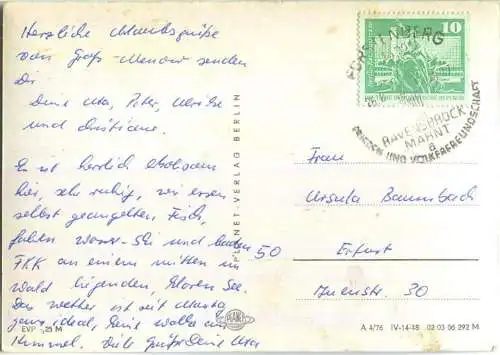 Herzliche Urlaubsgrüße
von Groß-Menow senden
Dir
Deine Uta, Peter, Ulrike
und Christiane.
Es ist herrlich erholsam
hier, sehr ruhig, wir essen
selbst geangelten Fisch,
fahren Wasser-Ski und baden
FKK an einem mitten im
Wald liegenden, klaren See.
Das Wetter ist seit
ganz ideal, keine Wolke am
Himmel. Viele Grüße Deine Uta
EVP -,25 M
PLANET-VERLAG BERLIN
PLANET
10
FÜRSTENBERG
RAVENSBRÜCK
MAHNT
a
FRIEDEN UND VÖLKERFREUNDSCHAFT
Frau
Ursula Baumbach
50 Erfurt
30
A 4/76 IV-14-48 02 03 06 292 M